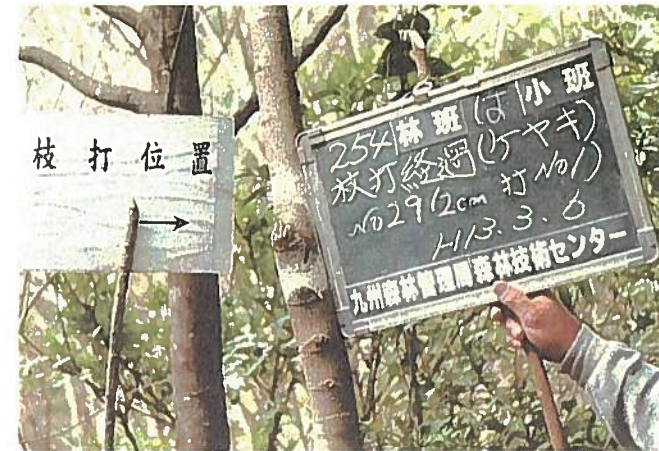 枝打位置
→
254林班は小班
枝打経過(ケヤキ)
No29 12cm 打No1)
H13.3.6
九州森林管理局森林技術センター